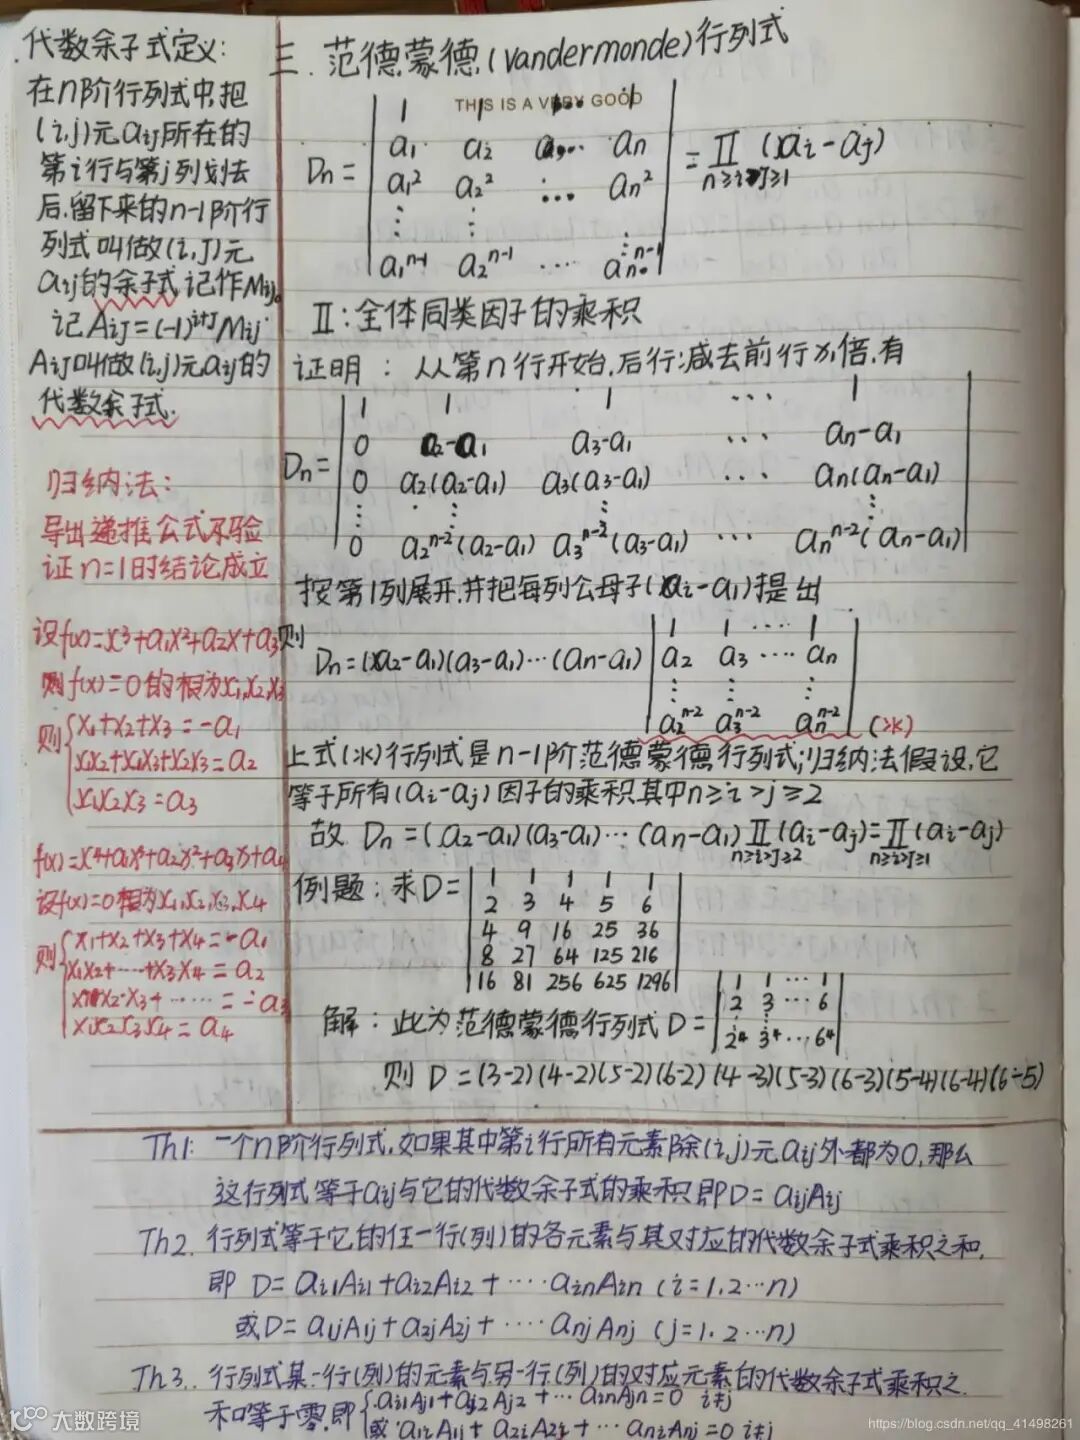 代数余子式定义:
在n阶行列式中,把
(i,j)元aij所在的
第i行与第j列划去
后,留下来的n-1阶行
列式叫做(i,j)元
aij的余子式,记作Mij。
记Aij=(-1)^{i+j}Mij.
Aij叫做(i,j)元aij的
代数余子式.
归纳法:
导出递推公式不验
证n=1时结论成立
设f(x)=x³+a₁x²+a₂x+a₃则
则f(x)=0的根为x₁,x₂,x₃
则{x₁+x₂+x₃=-a₁
x₁x₂+x₁x₃+x₂x₃=a₂
x₁x₂x₃=a₃
f(x)=x⁴+a₁x³+a₂x²+a₃x+a₄
设f(x)=0根为x₁,x₂,x₃,x₄
则{x₁+x₂+x₃+x₄=-a₁
x₁x₂+····+x₃x₄=a₂
x₁x₂x₃+······=-a₃
x₁x₂x₃x₄=a₄
三.范德蒙德(Vandermonde)行列式
THIS IS A VERY GOOD
1 1 ··· 1
a₁ a₂ ··· an
Dn= a₁² a₂² ··· an² =Π(ai-aj)
n≥i>j≥1
⋮ ⋮ ⋮
a₁^{n-1} a₂^{n-1} ···· an^{n-1}
Π:全体同类因子的乘积
证明:从第n行开始,后行减去前行x₁倍,有
1 1 1 ··· 1
0 a₂-a₁ a₃-a₁ ··· an-a₁
Dn= 0 a₂(a₂-a₁) a₃(a₃-a₁) ··· an(an-a₁)
⋮ ⋮ ⋮
0 a₂^{n-2}(a₂-a₁) a₃^{n-2}(a₃-a₁) ··· an^{n-2}(an-a₁)
按第1列展开,并把每列公母子(ai-a₁)提出
1 1 ···· 1
Dn=(a₂-a₁)(a₃-a₁)···(an-a₁) a₂ a₃ ···· an
⋮ ⋮ ⋮
a₂^{n-2} a₃^{n-2} an^{n-2} (※)
上式(※)行列式是n-1阶范德蒙德行列式;归纳法假设,它
等于所有(ai-aj)因子的乘积,其中n≥i>j≥2
故 Dn=(a₂-a₁)(a₃-a₁)···(an-a₁)Π(ai-aj)=Π(ai-aj)
n≥i>j≥2 n≥i>j≥1
例题:求D= 1 1 1 1 1
2 3 4 5 6
4 9 16 25 36
8 27 64 125 216
16 81 256 625 1296
解:此为范德蒙德行列式D= 1 1 ··· 1
2 3 ··· 6
⋮ ⋮
2⁴ 3⁴ ··· 6⁴
则 D=(3-2)(4-2)(5-2)(6-2)(4-3)(5-3)(6-3)(5-4)(6-4)(6-5)
Th1: 一个n阶行列式,如果其中第i行所有元素除(i,j)元aij外都为0,那么
这行列式等于aij与它的代数余子式的乘积,即D=aijAij
Th2. 行列式等于它的任一行(列)的各元素与其对应的代数余子式乘积之和,
即 D=ai1Ai1+ai2Ai2+····ainAin (i=1,2···n)
或D=a1jA1j+a2jA2j+····anjAnj (j=1,2···n)
Th3. 行列式某一行(列)的元素与另一行(列)的对应元素的代数余子式乘积之
和等于零,即{ai1Aj1+ai2Aj2+···ainAjn=0 i≠j
或 a1iA1j+a2iA2j+···aniAnj=0 i≠j
大数跨境
https://blog.csdn.net/qq_41498261